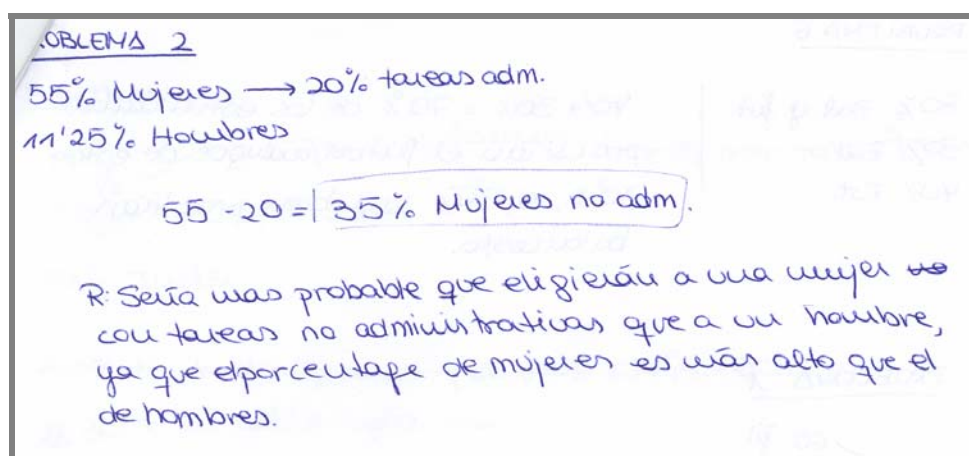 OBLEMA 2
55% Mujeres → 20% tareas adm.
11'25% Hombres
55 - 20 = 35% Mujeres no adm.
R: Sería mas probable que eligierán a una mujer
con tareas no administrativas que a un hombre,
ya que elporcentage de mujeres es más alto que el
de hombres.